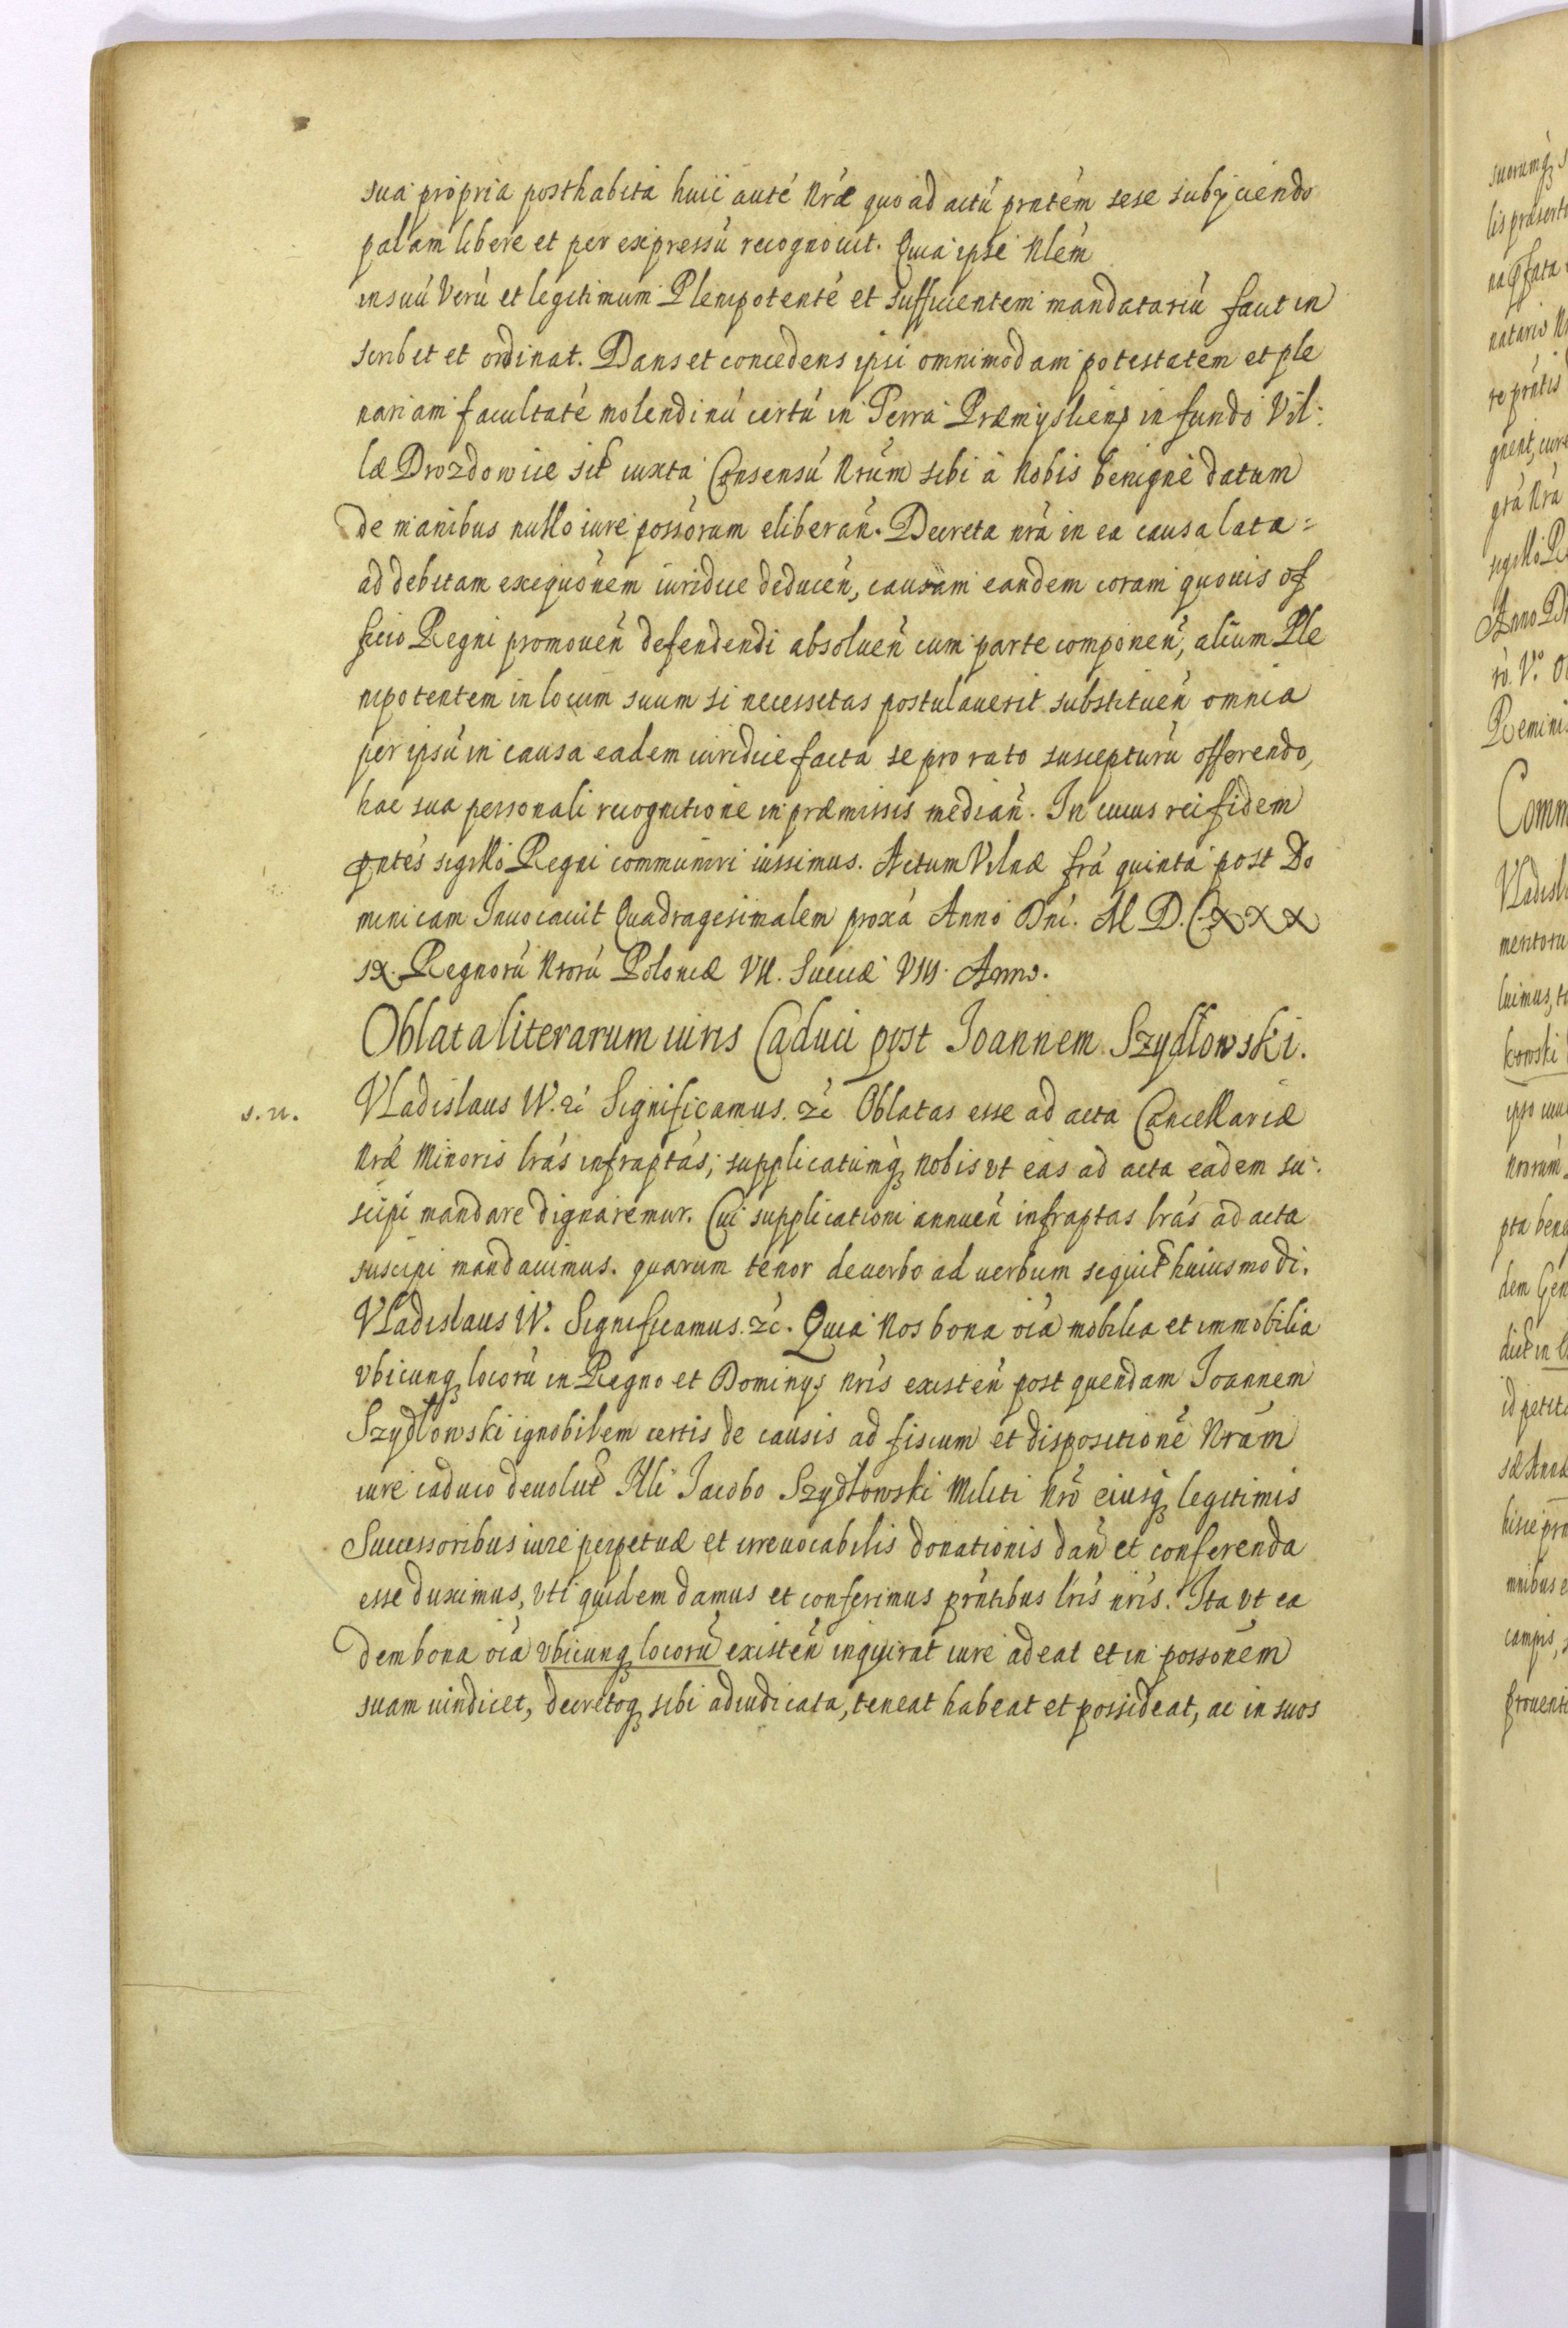 sua propria posthabita huic auté Nrae quo ad actú prntém sese subijciendo
palam libere et per expressú recognouit. Quia ipse Nlém
in suú verú et legitimum Plenipotenté et sufficientem mandatariú facit in
scribit et ordinat. Dans et concedens ipsi omnimodam potestatem et ple
nariam facultaté molendinú certú in Terra Præmysliens in fundo Vil:
læ Drozdowice sit iuxta Consensú Nrúm sibi à Nobis benigné datum
de manibus nullo iure possórum eliberan̄. Decreta nrá in ea causa lata =
ad debitam exequónem iuridice deducen̄, causam eandem coram quouis of
ficio Regni promouen̄ defendendi absoluen̄ cum parte componen̄, alium Ple
nipotentem in locum suum si necessitas postulauerit substituen̄ omnia
per ipsú in causa eadem iuridice facta se pro rato suscepturú offerendo,
hac sua personali recognitione in præmissis median̄. In cuius rei fidem
pntés sigillo Regni communiri iussimus. Actum Vilnæ frá quinta post Do
minicam Inuocauit Quadragesimalem proxá Anno Dni. M D. C X X X
IX. Regnorú Nrorú Poloniæ VII. Sueciæ VIII. Anno.
Oblata literarum iuris Caduci post Ioannem Szydłowski.
s. n. Vladislaus IV. zć Significamus. zć Oblatas esse ad acta Cancellariæ
Nræ Minoris lrás infraptás, supplicatúmq Nobis vt eas ad acta eadem su:
scipi mandare dignaremur. Cui supplicationi annuen̄ infraptas lrás ad acta
suscipi mandauimus. quarum tenor de verbo ad uerbum sequit huiusmodi.
Vladislaus IV. Significamus. zć. Quia Nos bona oiá mobilia et immobilia
vbicunq locorú in Regno et Dominijs nris existen̄ post quendam Ioannem
Szydłowski ignobilem certis de causis ad fiscum et dispositioné Nrám
iure caduco deuolut Nli Iacobo Szydłowski Militi Nró eiusq legitimis
Successoribus iure perpetuæ et irreuocabilis donationis dan̄ et conferenda
esse duximus, vti quidem damus et conferimus prntibus lris nris. Ita vt ea
dem bona oiá vbicunq locorú existen̄ inquirat iure adeat et in possonem
suam uindicet, decretoq sibi adiudicata, teneat habeat et possideat, ac in suos